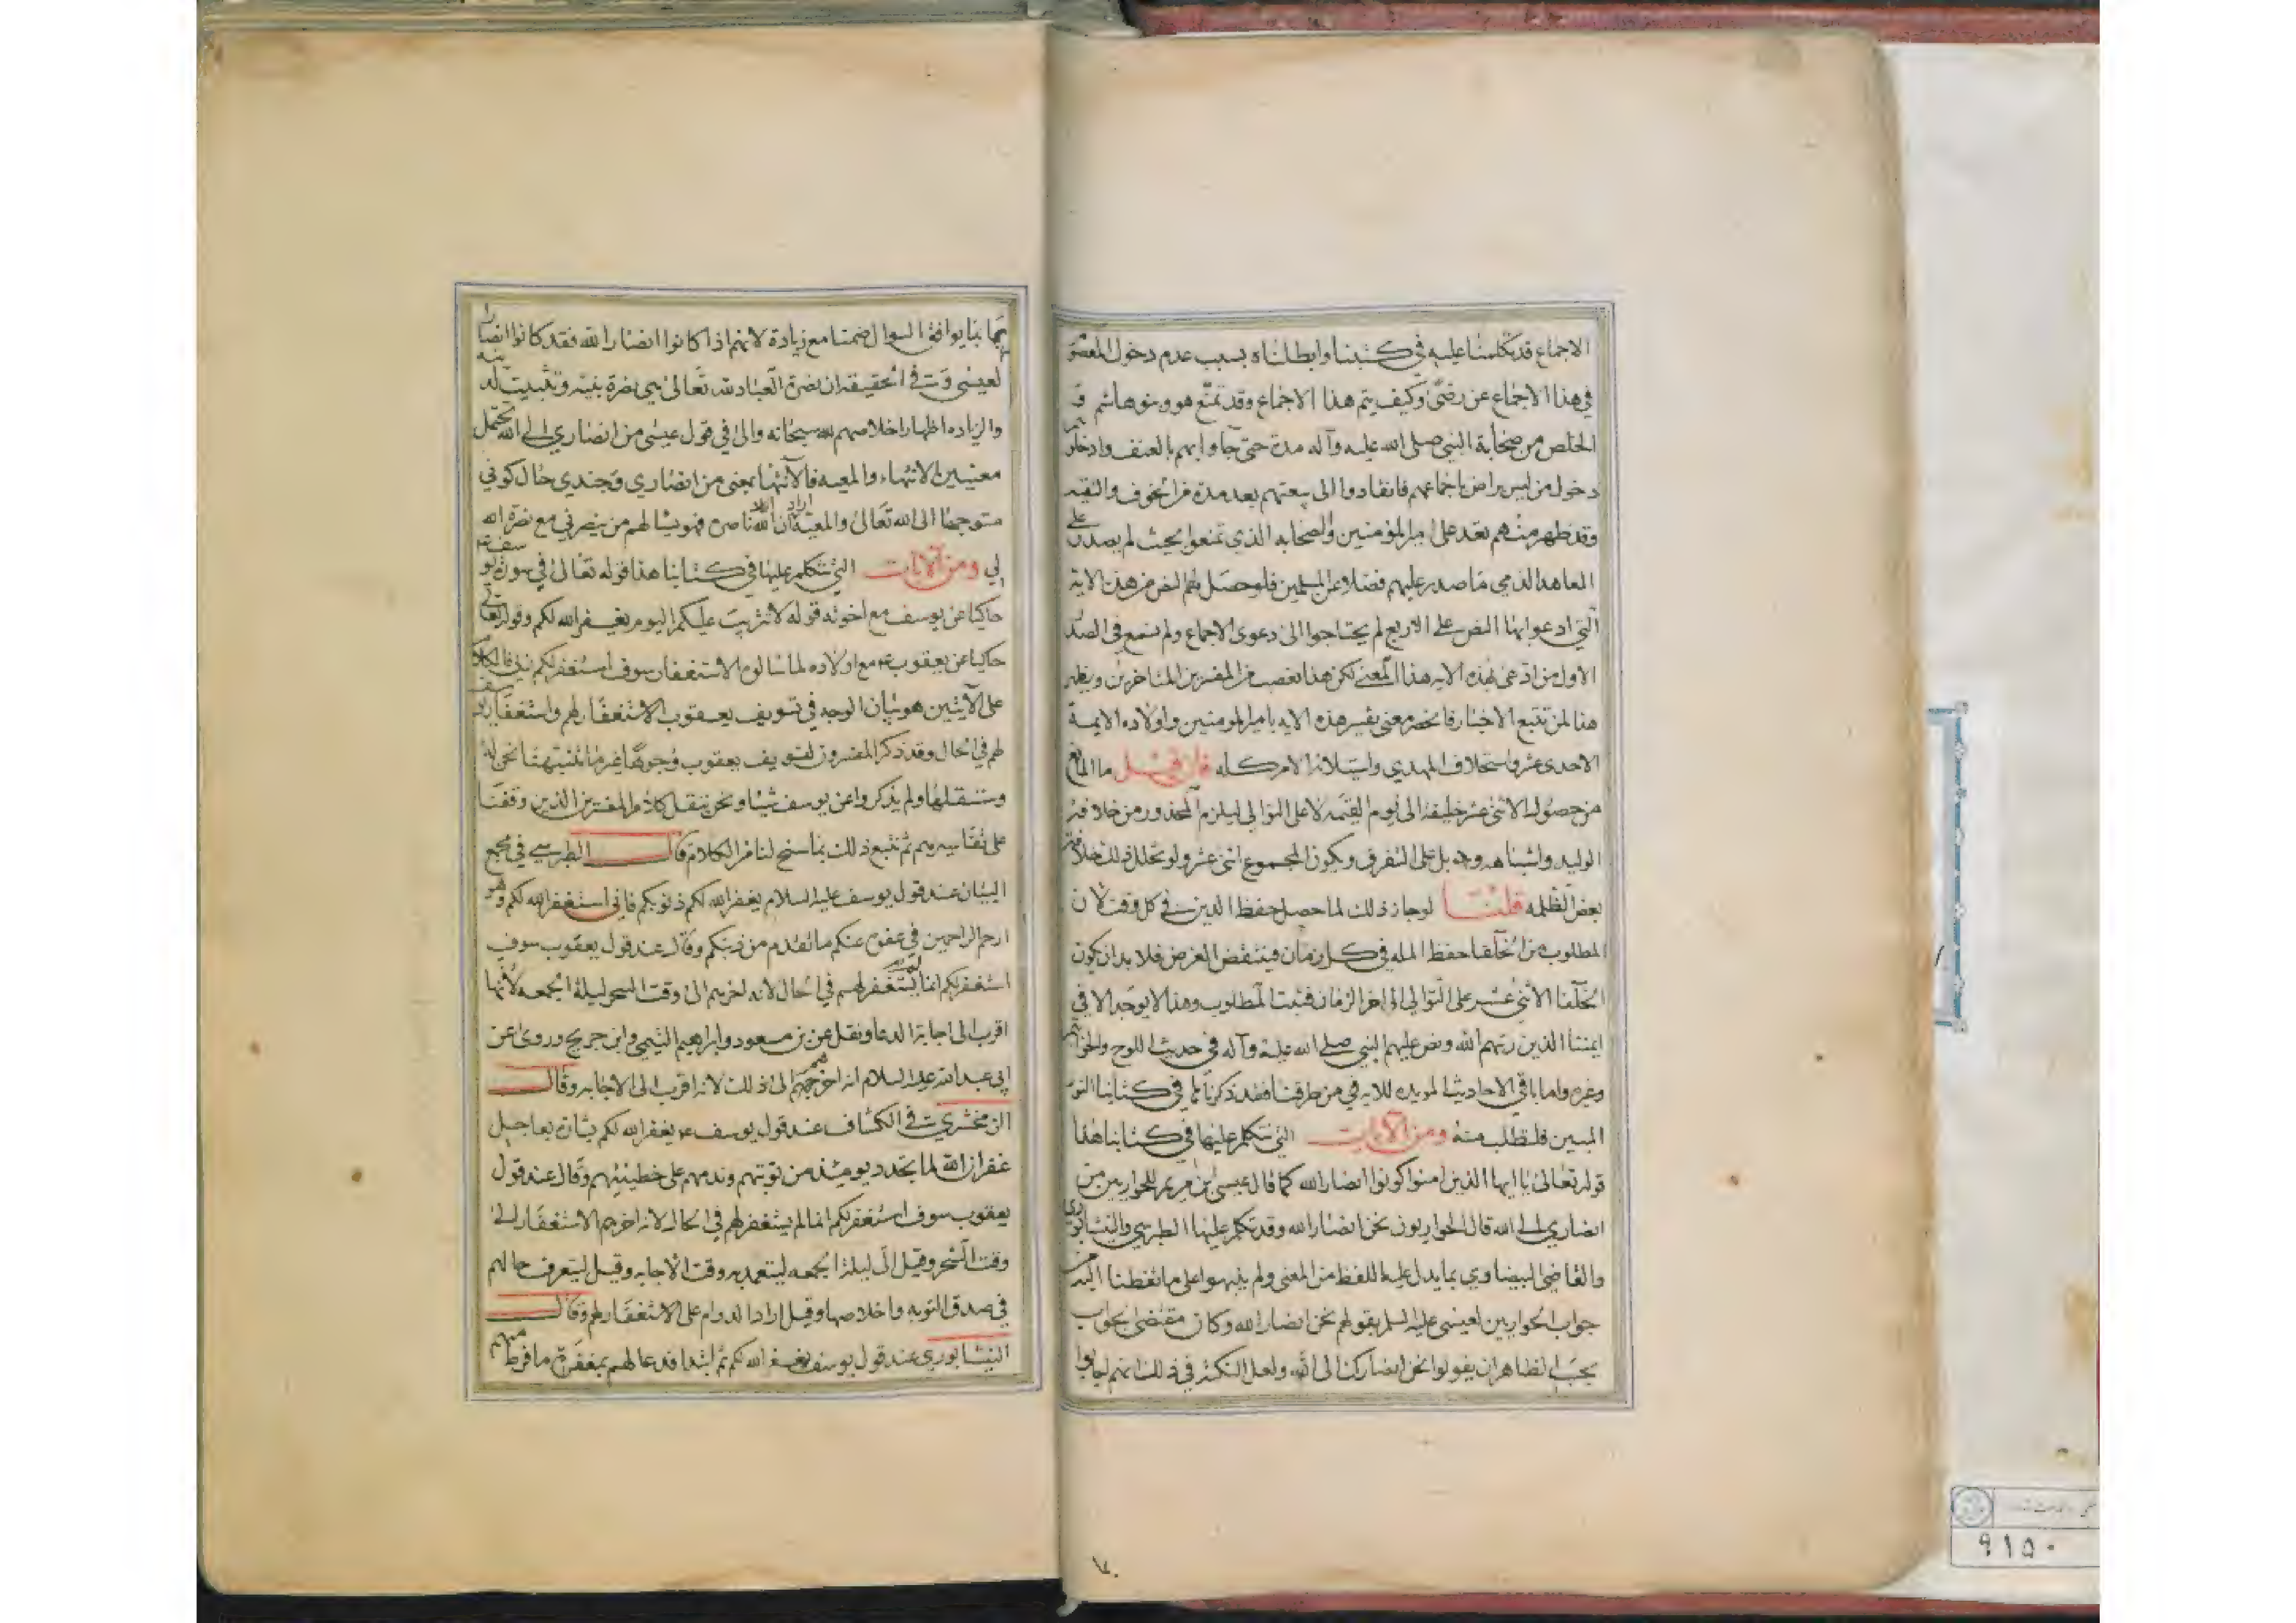 الاجماع قد تكلمنا عليه في كتبنا وابطلناه بسبب عدم دخول المعصوم
في هذا الاجماع عن رضى وكيف يتم هذا الاجماع وقد تمنع هو وبنو هاشم و
الخلص من صحابة النبي صلى الله عليه وآله مدة حتى جاوا بهم بالعنف وادخلوهم
دخول من ليس براض باجماعهم فانقادوا الى بيعتهم بعد مدة من الخوف والتقيه
وقد ظهر منهم بعد على امير المؤمنين والصحابه الذي تمنعوا بحيث لم يصدر على
المعاهد الذمي ما صدر عليهم فضلا عن المسلمين فلو حصل لهم النص من هذه الاية
التي ادعوا بها النص على الاربع لم يحتاجوا الى دعوى الاجماع ولم يسمع في الصدر
الاول من ادعى بهذه الايه هذا المعنى لكن هذا تعصب من المفسرين المتاخرين ويظهر
هذا لمن تتبع الاخبار فانحصر معنى تفسير هذه الايه بامير المومنين واولاده الايمة
الاحدى عشر واستخلاف المهدي واستيلائه الامر كله فان قيل ما المانع
من حصول الاثنى عشر خليفه الى يوم القيمه لا على التوالي ليلزم المحذور من خلافة
الوليد واشباهه وجه بل على التفرق ويكون المجموع اثنى عشر ولو تخلل ذلك خلافة
بعض الظلمه قلنا لو جاز ذلك لما حصل حفظ الدين في كل وقت لان
المطلوب من الخلفا حفظ المله في كل زمان فينتقض الغرض فلا بد ان يكون
الخلفا الاثنى عشر على التوالي الى اخر الزمان فيثبت المطلوب وهذا لا يوجد الا في
ايمتنا الذين رتبهم الله ونص عليهم النبي صلى الله عليه وآله في حديث اللوح والخواتيم
وغيره واما باقي الاحاديث المويده للايه في من طرقنا فقد ذكرناها في كتابنا النور
المبين فلتطلب منه ومن الآيات التي نتكلم عليها في كتابنا هذا
قوله تعالى يا ايها الذين امنوا كونوا انصار الله كما قال عيسى ابن مريم للحواريين من
انصاري الى الله قال الحواريون نحن انصار الله وقد تكلم عليها الطبرسي والنيشابوري
والقاضي البيضاوي بما يدل عليه اللفظ من المعنى ولم ينبهوا على ما تفطنا اليه من
جواب الحواريين لعيسى عليه السلم بقولهم نحن انصار الله وكان مقتضى الجواب
بحسب الظاهر ان يقولوا نحن انصارك الى الله ولعل النكته في ذلك انهم اجابوا
بما يوافق السوال ضمنا مع زيادة لانهم اذا كانوا انصار الله فقد كانوا انصارا
لعيسى في الحقيقه ان نصرة العباد لله تعالى هي نصرة نبيه وتثبيت دينه
والزياده اظهار اخلاصهم لله سبحانه والى في قول عيسى من انصاري الى الله يحتمل
معنيين الانتهاء والمعيه فالانتها بمعنى من انصاري وجندي حال كوني
متوجها الى الله تعالى والمعية اراد ان الله ناصره فهو يسالهم من ينصرني مع نصرة الله
لي ومن الآيات التي نتكلم عليها في كتابنا هذا قوله تعالى في سورة يوسف
حاكيا عن يوسف مع اخوته قوله لا تثريب عليكم اليوم يغفر الله لكم وقوله تعالى
حاكيا عن يعقوب مع اولاده لما سالوه الاستغفار سوف استغفر لكم ربي فالكلام
على الآيتين هو بيان الوجه في تسويف يعقوب الاستغفار لهم واستغفار يوسف
لهم في الحال وقد ذكر المفسرون لتسويف يعقوب وجوها غير ما تنبهنا نحن له
وسننقلها ولم يذكروا عن يوسف شيئا ونحن ننقل كلام المفسرين الذين وقفنا
على تفاسيرهم ثم نتبع ذلك بما سنح لنا من الكلام قال الطبرسي في مجمع
البيان عند قول يوسف عليه السلام يغفر الله لكم ذنوبكم فاني استغفر الله لكم وهو
ارحم الراحمين في عفوه عنكم ما تقدم من ذنبكم وقال عند قول يعقوب سوف
استغفر لكم انما لم يستغفر لهم في الحال لانه اخرهم الى وقت السحر ليلة الجمعه لانها
اقرب الى اجابة الدعا ونقل عن بن مسعود وابراهيم التيمي وابن جريج وروى عن
ابي عبد الله عليه السلام انه اخرهم الى ذلك لانه اقرب الى الاجابه وقال
الزمخشري في الكشاف عند قول يوسف يغفر الله لكم بشارة بعاجل
غفران الله لما تجدد يومئذ من توبتهم وندمهم على خطيئتهم وقال عند قول
يعقوب سوف استغفر لكم انما لم يستغفر لهم في الحال لانه اخرهم الاستغفار الى
وقت السحر وقيل الى ليلة الجمعه ليتعمد به وقت الاجابه وقيل ليتعرف حالهم
في صدق التوبه واخلاصها وقيل اراد الدوام على الاستغفار لهم وقال
النيشابوري عند قول يوسف يغفر الله لكم ثم ابتدا فدعا لهم بمغفرة ما فرط منهم
١٧٠
٩١٥٠